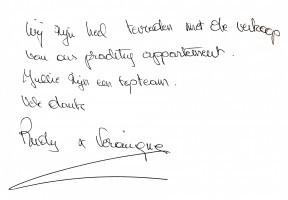 Wij zijn heel tevreden met de verkoop
van ons prachtig appartement.
Jullie zijn een topteam.
Vele dank
Rudy & Veronique